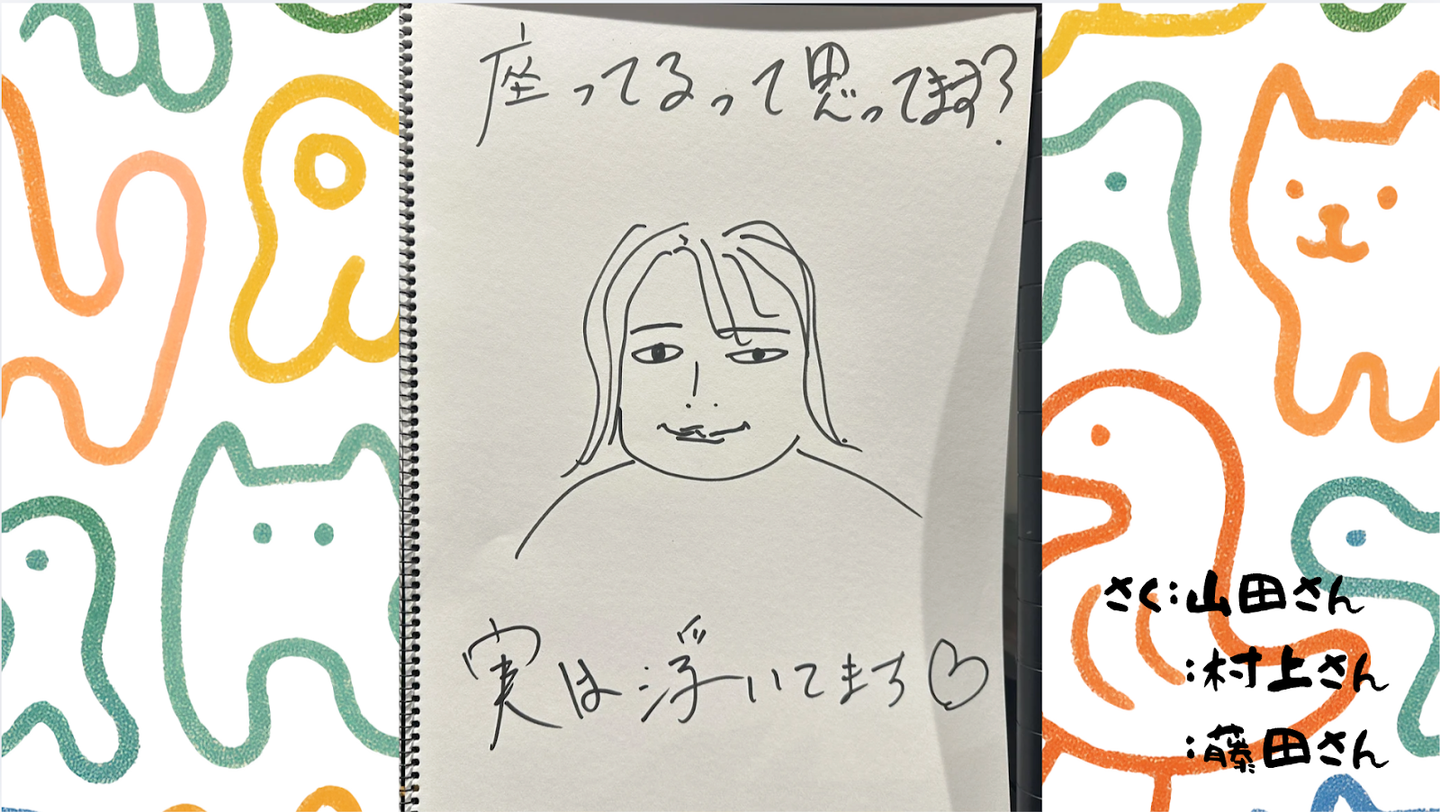 座ってるって思ってます?
実は浮いてます♡
さく:山田さん
:村上さん
:藤田さん